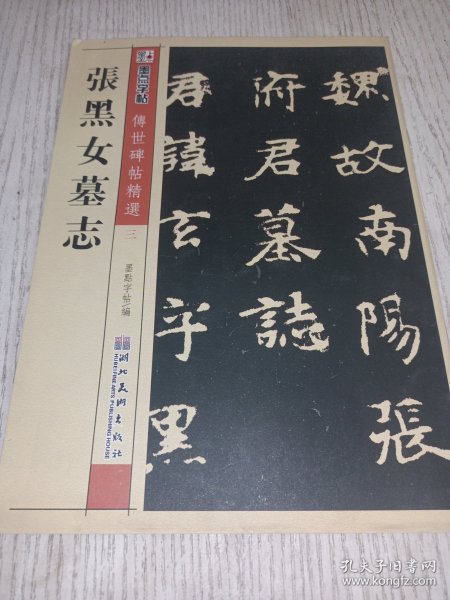 張黑女墓志
墨点字帖
傳世碑帖精選
三
墨點字帖/編
湖北美術出版社
HUBEI FINE ARTS PUBLISHING HOUSE
魏故南陽張
府君墓誌
君諱玄字黑
孔夫子旧书网
www.kongfz.com